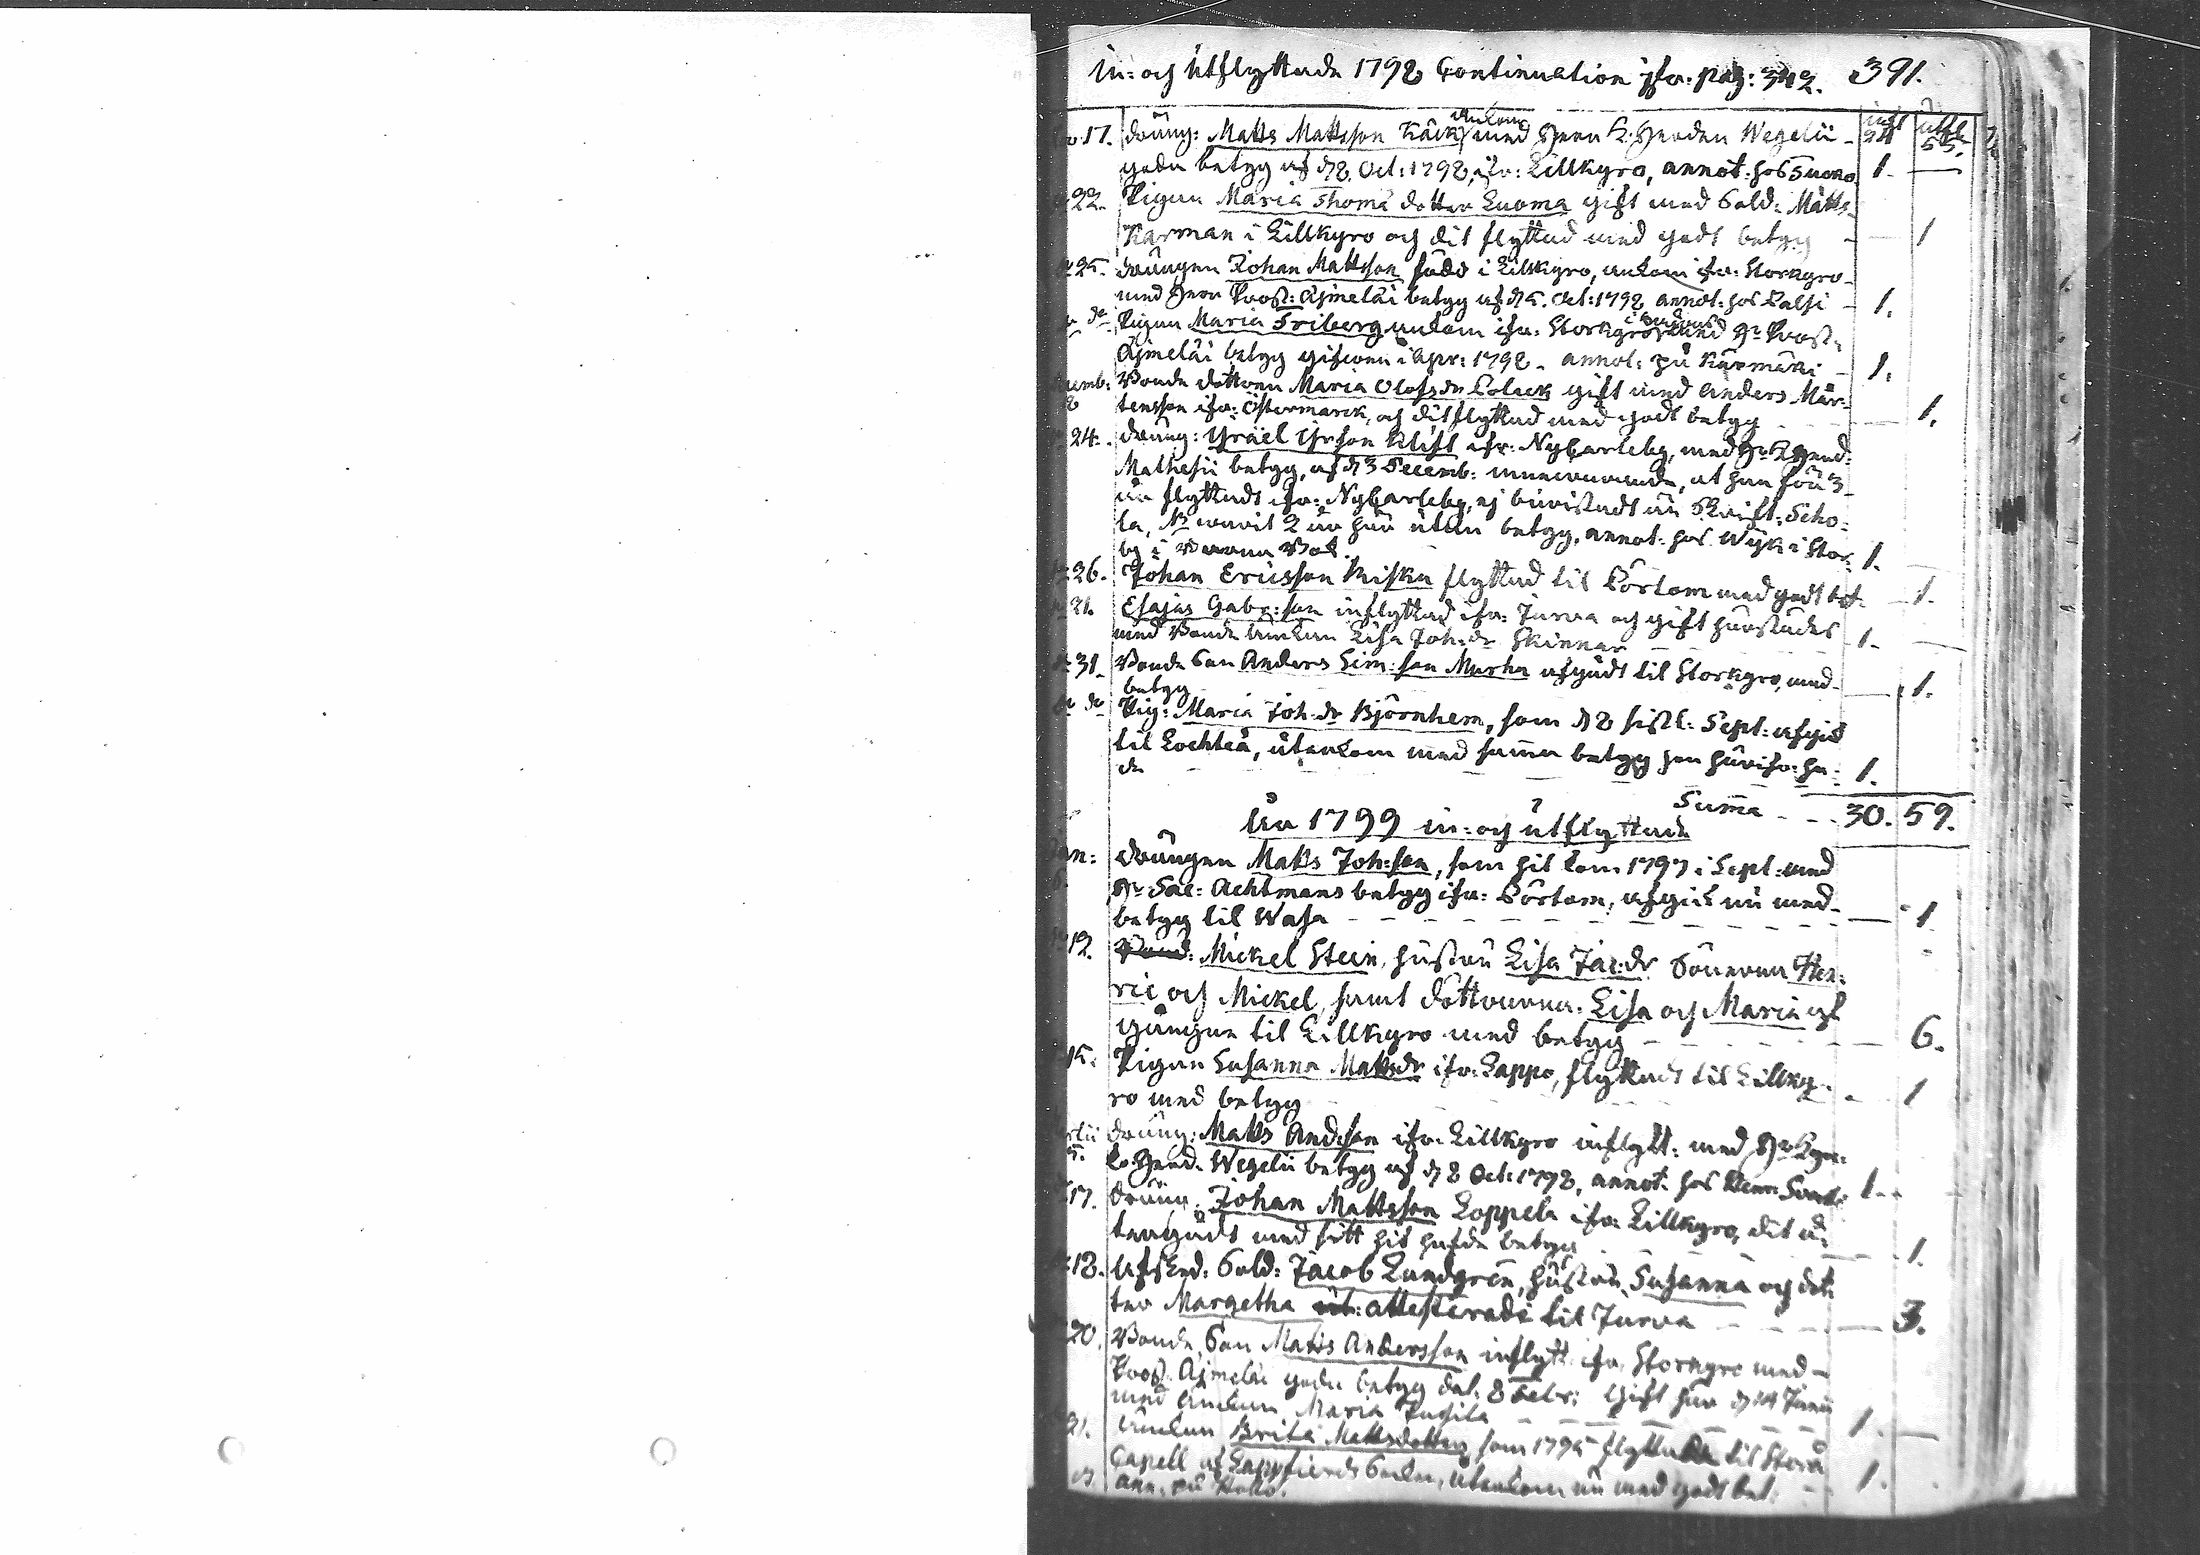 In- och Utflyttade 1798 Continuation ifr: pag: 342. 391.
inft utfl
24 55.
17. dräng: Matts Mattsson Käck ankom med Herr K: Herden Wegelii
goda betyg af d 8 Oct: 1798, ifr: Lillkyro, annot: hos Suoma 1. —
22. Pigan Maria Thomæ dotter Luoma gift med Sold: Matts
Karman i Lillkyro och dit flyttad med godt betyg — 1
25. drängen Johan Mattsson född i Lillkyro, ankom ifr: Storkyro
med Herr Prost: Ajmelæi betyg af d 5. Oct: 1798 annot: hos Passi 1.
do Pigan Maria Friberg ankom ifr: Storkyro med Hr Prost:
Ajmelæi betyg gifven i Apr: 1798. annot: på Karmäki 1.
cemb: Bonde dottren Maria Olofs dr Polack gift med Anders Mår-
8 tensson ifr: Östermarck, och dit flyttad med godt betyg — 1.
24. dräng: Israel Isr:son Klift ifr: NyCarleby, med Hr K: Herd:
Mathesii betyg, af d 3 Decemb: innevarande, at han för 3
år flyttadt ifr: NyCarleby, ej bevistadt än Skrift: Scho-
la, NB varit 2 år här utan betyg, annot: hos Wijk i Stor-
by i Barna Bok. 1.
26. Johan Ericsson Riska flyttad til Pörtom med godt bet. — 1.
21. Esajas Gabr:son inflyttad ifr: Jurva och gift härstädes
med Bonde Änkan Lisa Joh:dr Skinnar 1. —
31. Bonde Son Anders Sim:son Murha afgådt til Storkyro, med
betyg — 1.
do do Pig: Maria Joh:dr Björnhem, som d 8 sistl: Sept: afgick
til Lochteå, återkom med samma betyg hon härifr: ha-
de 1.
Summa 30. 59.
År 1799 in- och utflyttade
an: drängen Matts Joh:son, som hit kom 1797 i Sept: med
6. Hr Sac: Achtmans betyg ifr: Pörtom, afgick nu med
betyg til Wasa — 1
12. Mickel Stein, hustru Lisa Jac:dr Sönerna Hen-
ric och Mickel, samt döttrarna: Lisa och Maria af
gångne til Lillkyro med betyg — 6.
15. Pigan Susanna Matts dr ifr: Lappo, flyttadt til Lillky-
ro med betyg 1
rtii dräng: Matts And:son ifr: Lillkyro inflytt: med Hr Kyr-
5. ko Herd: Wegelii betyg af d 8 Oct: 1798, annot: hos 1.
17. dräng: Johan Mattsson Loppela ifr: Lillkyro, dit å-
tergådt med sitt hit hafda betyg 1.
18. Afsked: Sold: Jacob Lundgren, hustru Susanna och dot-
ter Margetha attesterade til Jurva — 3.
20. Bonde Son Matts Andersson inflytt ifr: Storkyro med
Prost: Ajmelæi goda betyg dat: 8 Febr: Gift här d 14 Junii
med änkan Maria 1. —
21. Änkan Brita Mattsdotter, som 1795 flyttade til Storå
Capell af Lappfierds Sokn, återkom nu med godt bet: 1.
ann: på